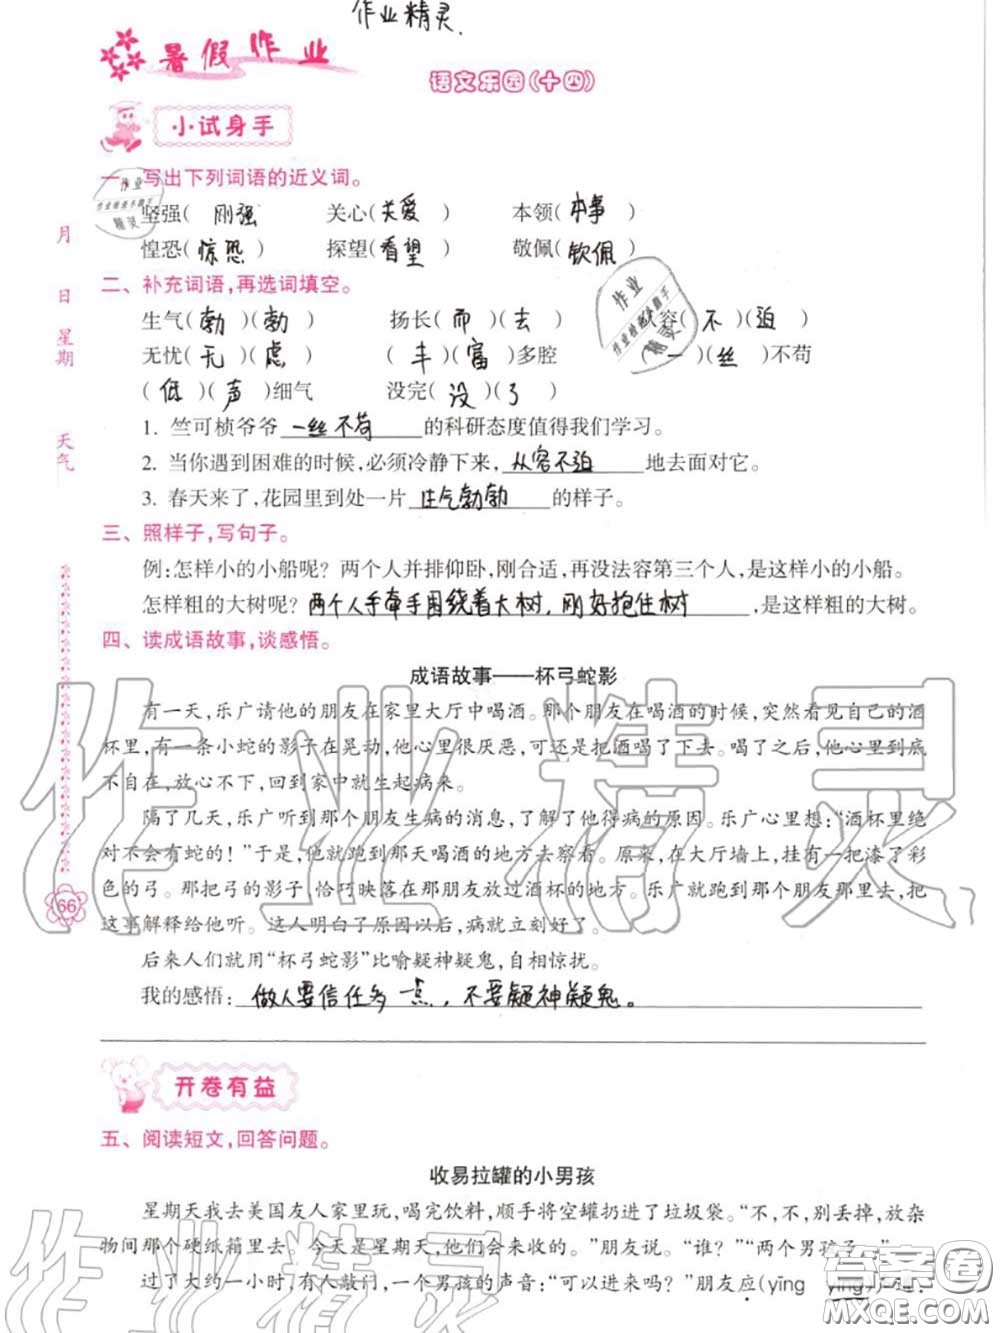 作业精灵.
暑假作业
语文乐园(十四)
小试身手
一、写出下列词语的近义词。
坚强( 刚强 ) 关心( 关爱 ) 本领( 本事 )
惶恐( 惊恐 ) 探望( 看望 ) 敬佩( 钦佩 )
二、补充词语,再选词填空。
生气(勃)(勃) 扬长(而)(去) 容(不)(迫)
无忧(无)(虑) (丰)(富)多腔 (一)(丝)不苟
(低)(声)细气 没完(没)(了)
1. 竺可桢爷爷 一丝不苟 的科研态度值得我们学习。
2. 当你遇到困难的时候,必须冷静下来, 从容不迫 地去面对它。
3. 春天来了,花园里到处一片 生气勃勃 的样子。
三、照样子,写句子。
例:怎样小的小船呢?两个人并排仰卧,刚合适,再没法容第三个人,是这样小的小船。
怎样粗的大树呢? 两个人手牵手围绕着大树,刚好抱住树 ,是这样粗的大树。
四、读成语故事,谈感悟。
成语故事——杯弓蛇影
有一天,乐广请他的朋友在家里大厅中喝酒。那个朋友在喝酒的时候,突然看见自己的酒
杯里,有一条小蛇的影子在晃动,他心里很厌恶,可还是把酒喝了下去。喝了之后,他心里到底
不自在,放心不下,回到家中就生起病来。
隔了几天,乐广听到那个朋友生病的消息,了解了他得病的原因。乐广心里想:“酒杯里绝
对不会有蛇的!”于是,他就跑到那天喝酒的地方去察看。原来,在大厅墙上,挂有一把漆了彩
色的弓。那把弓的影子,恰巧映落在那朋友放过酒杯的地方。乐广就跑到那个朋友那里去,把
这事解释给他听。这人明白了原因以后,病就立刻好了。
后来人们就用“杯弓蛇影”比喻疑神疑鬼,自相惊扰。
我的感悟: 做人要信任多一点,不要疑神疑鬼。
开卷有益
五、阅读短文,回答问题。
收易拉罐的小男孩
星期天我去美国友人家里玩,喝完饮料,顺手将空罐扔进了垃圾袋。“不,不,别丢掉,放杂
物间那个硬纸箱里去。今天是星期天,他们会来收的。”朋友说。“谁?”“两个男孩子。”
过了大约一小时,有人敲门,一个男孩的声音:“可以进来吗?”朋友应(yīng yìng)
月
日
星期
天气
66
作业精灵
作业检查小助手
作业
作业检查小助手
精灵
作业精灵
作业精灵
答案圈
MXQE.COM